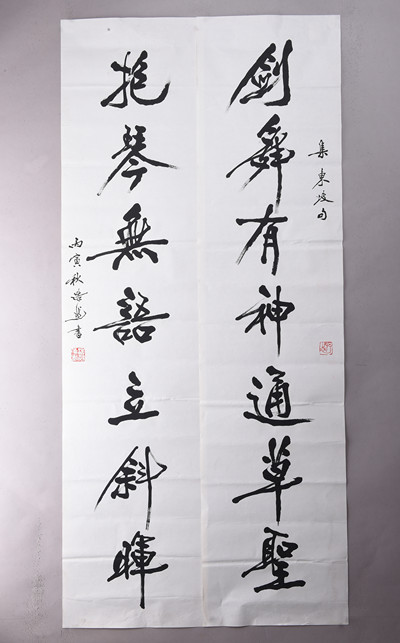 集東坡句
劍舞有神通草聖
抱琴無語立斜暉
丙寅秋
書